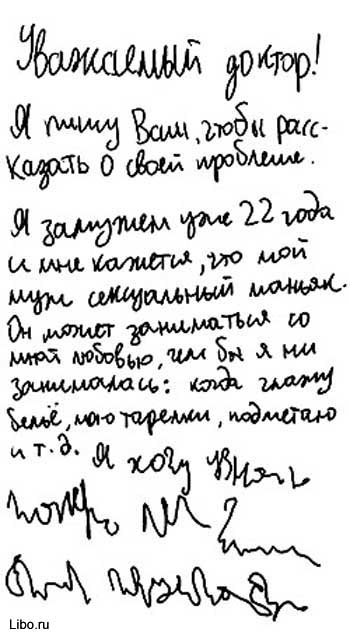 Уважаемый доктор!
Я пишу Вам, чтобы расс-
казать о своей проблеме.
Я замужем уже 22 года
и мне кажется, что мой
муж сексуальный маньяк.
Он может заниматься со
мной любовью, чем бы я ни
занималась: когда глажу
бельё, мою тарелки, подметаю
и т.д. Я хочу
Libo.ru